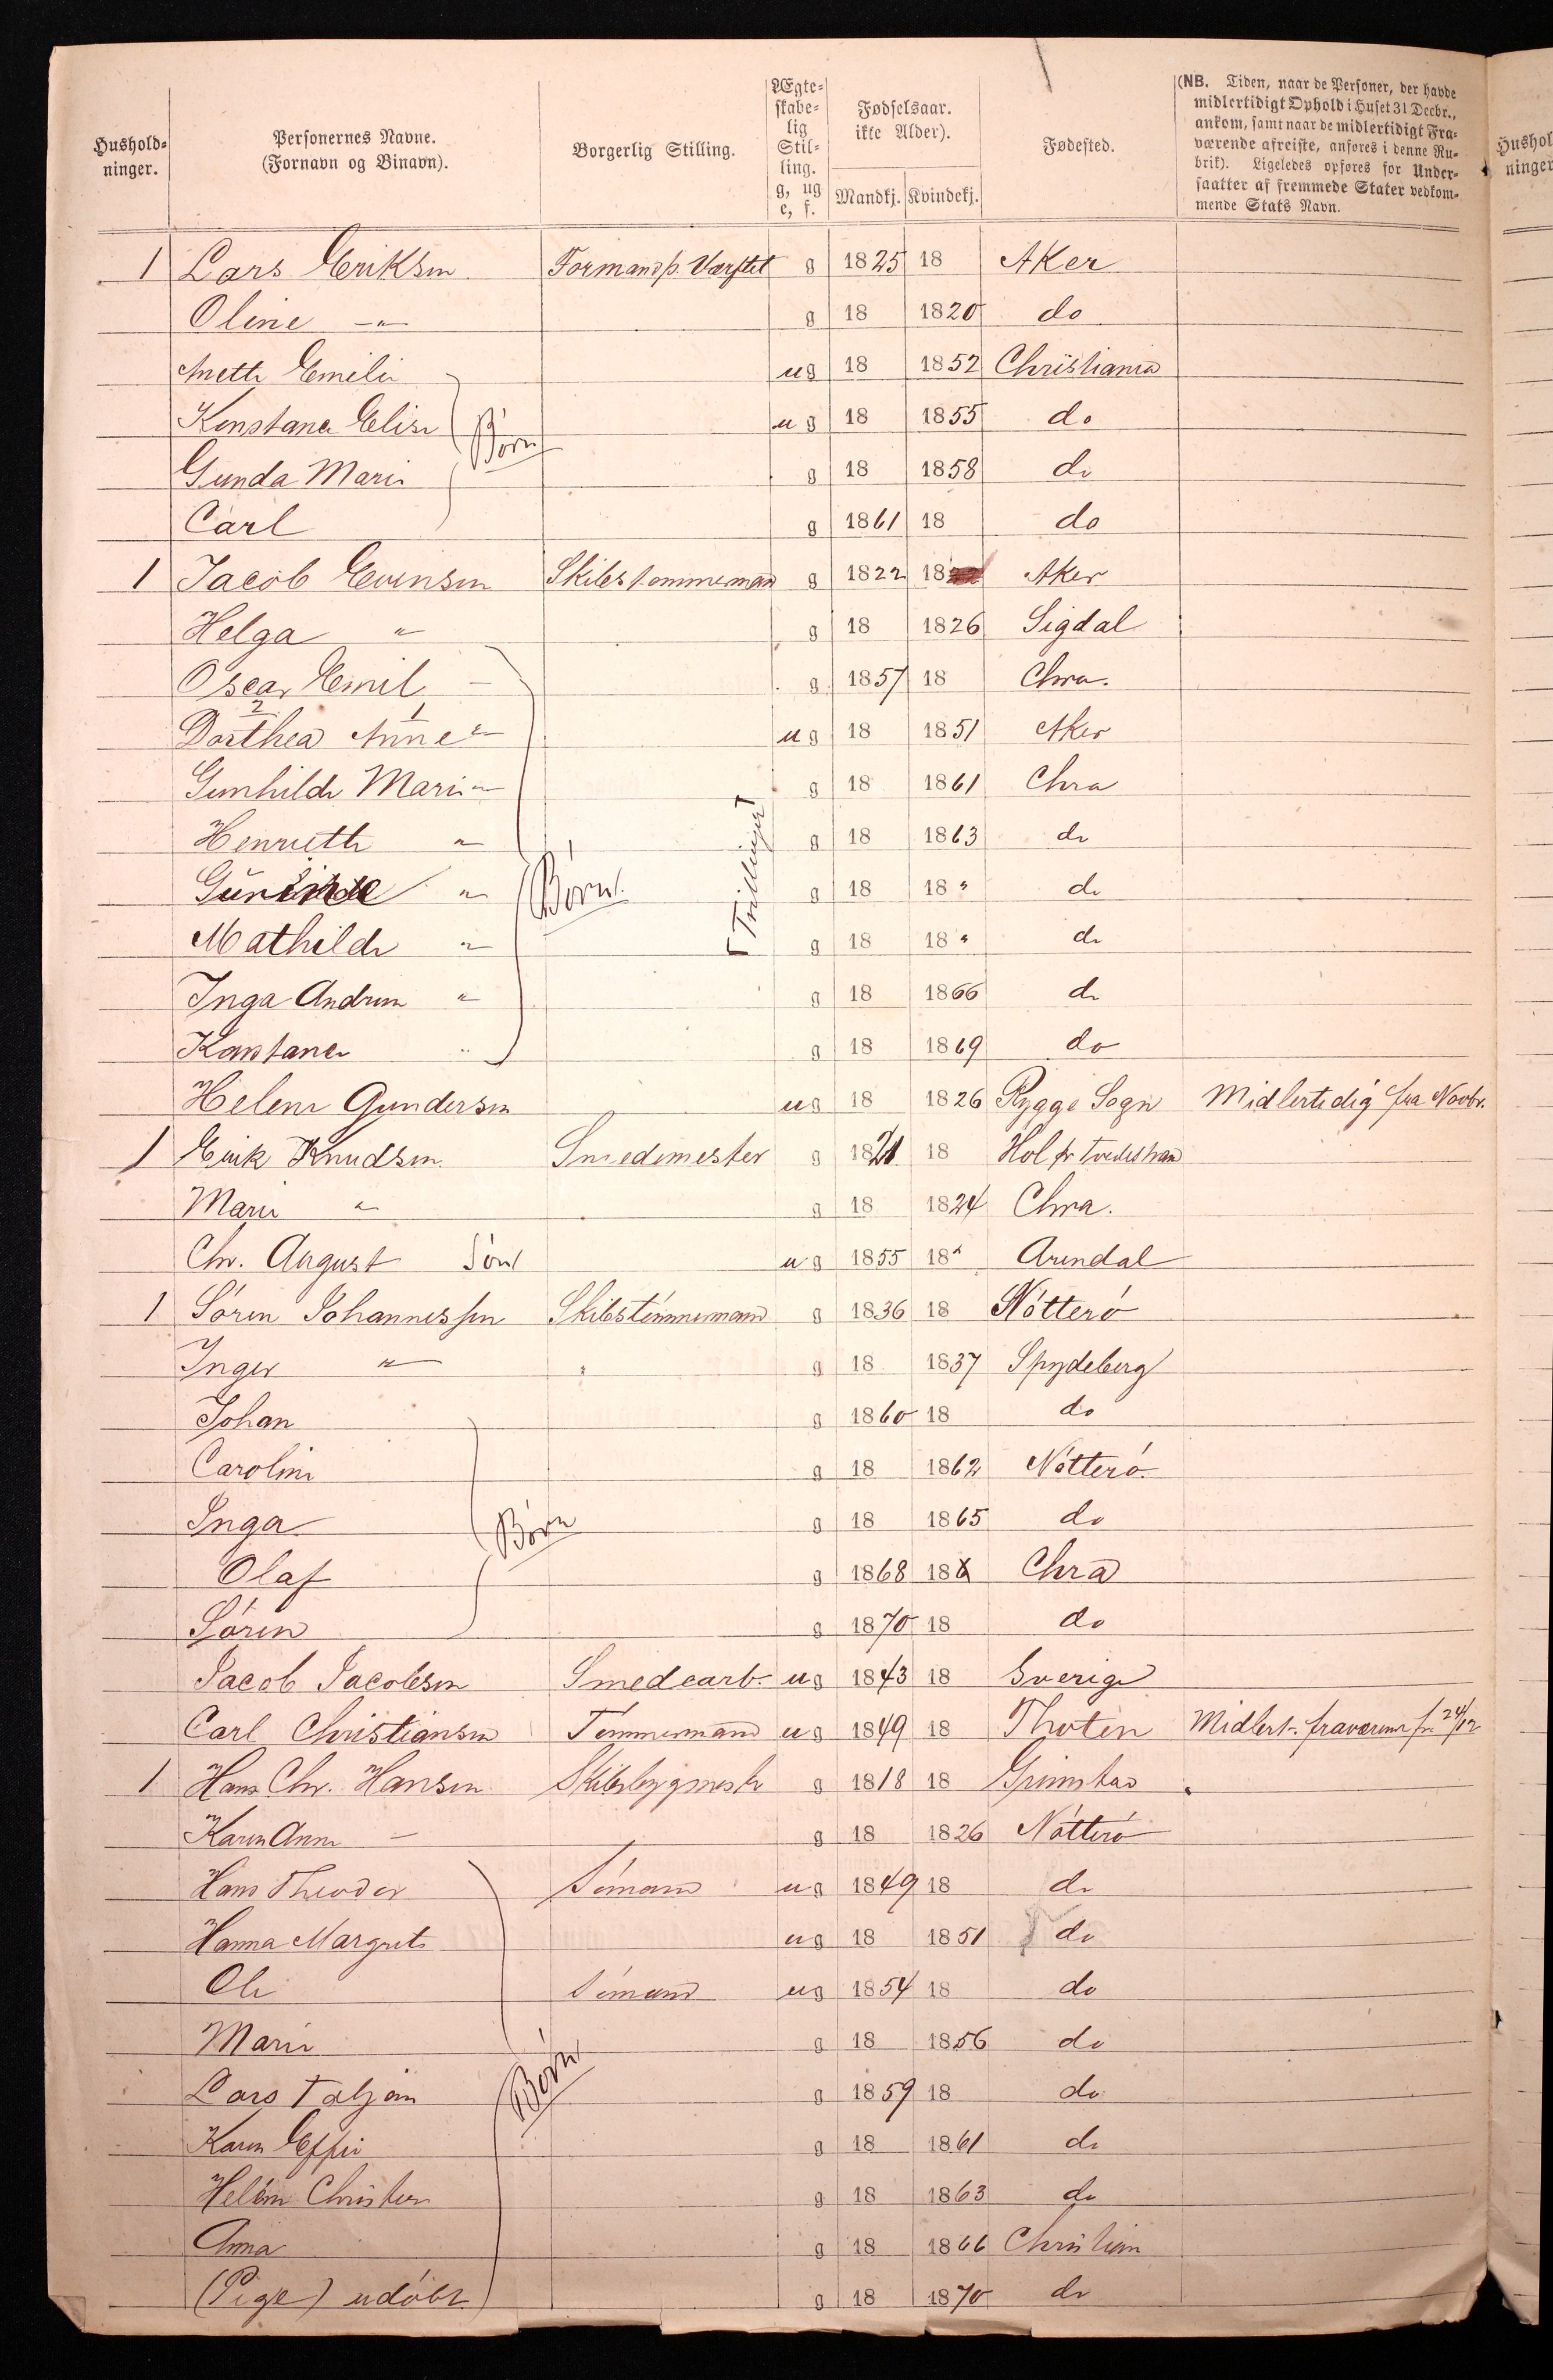 Hushold-ninger. Personernes Navne. (Fornavn og Binavn). Borgerlig Stilling. Ægte-skabe-lig Stil-ling. g, ug e, f. Fødselsaar. ikke Alder). Mandkj. Kvindekj. Fødested. (NB. Tiden, naar de Personer, der havde midlertidigt Ophold i Huset 31 Decbr., ankom, samt naar de midlertidigt Fra-værende afreiste, anføres i denne Ru-brik). Ligeledes opføres for Under-saatter af fremmede Stater vedkom-mende Stats Navn. Hushol ninger
1 Lars Eriksen Formand p. Værftet g 1825 18 Aker
Oline -"- g 18 1820 do
Anette Emilie ug 18 1852 Christiania
Konstance Elise Børn ug 18 1855 do
Gunda Marie g 18 1858 do
Carl g 1861 18 do
1 Jacob Evensen Skibstømmermand g 1822 18 Aker
Helga " g 18 1826 Sigdal
Oscar Emil - g 1857 18 Chra.
2 1
Dorthea Anne " ug 18 1851 Aker
Gunhilde Marie " g 18 1861 Chra
Henriette " g 18 1863 do
" Børn Trillinger g 18 18 " do
Mathilde " g 18 18 " do
Inga Andrea " g 18 1866 do
Konstance " g 18 1869 do
Helene Gundersen ug 18 1826 Rygge Sogn Midlertidig fra Novbr.
1 Erik Knudsen Smedemester g 1821 18 Hol pr Tvedestrand
Marie " g 18 1824 Chra.
Chr. August Søn ug 1855 18 " Arendal
1 Sören Johannessen Skibstömmermand g 1836 18 Nötterö
Inger " " g 18 1837 Spydeberg
Johan g 1860 18 do
Caroline g 18 1862 Nötterö.
Inga Børn g 18 1865 do
Olaf g 1868 18 Chra
Sören g 1870 18 do
Jacob Jacobsen Smedearb. ug 1843 18 Sverige
Carl Christiansen Tømmermand ug 1849 18 Thoten Midlert. fraværende fra 24/12
1 Hans Chr. Hansen Skibsbygmester g 1818 18 Grimstad
Karen Anne - g 18 1826 Nötterö
Hans Theodor Sömand ug 1849 18 do
Hanna Margrete ug 18 1851 do
Ole Sömand ug 1854 18 do
Marie g 18 1856 do
Lars Taljan Børn g 1859 18 do
Karen Effie g 18 1861 do
Helene Christine g 18 1863 do
Anna g 18 1866 Christian
(Pige) udöbt g 18 1870 do